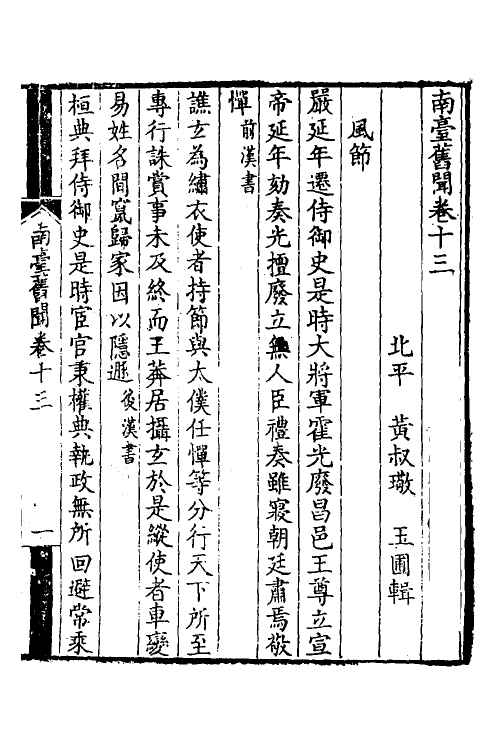 南臺舊聞卷十三
北平　黃叔璥　玉圃輯
風節
嚴延年遷侍御史是時大將軍霍光廢昌邑王尊立宣
帝延年劾奏光擅廢立無人臣禮奏雖寢朝廷肅焉敬
憚前漢書
譙玄為繡衣使者持節與太僕任惲等分行天下所至
專行誅賞事未及終而王莽居攝玄於是縱使者車變
易姓名間竄歸家因以隱遯後漢書
桓典拜侍御史是時宦官秉權典執政無所回避常乘
南臺舊聞卷十三
一